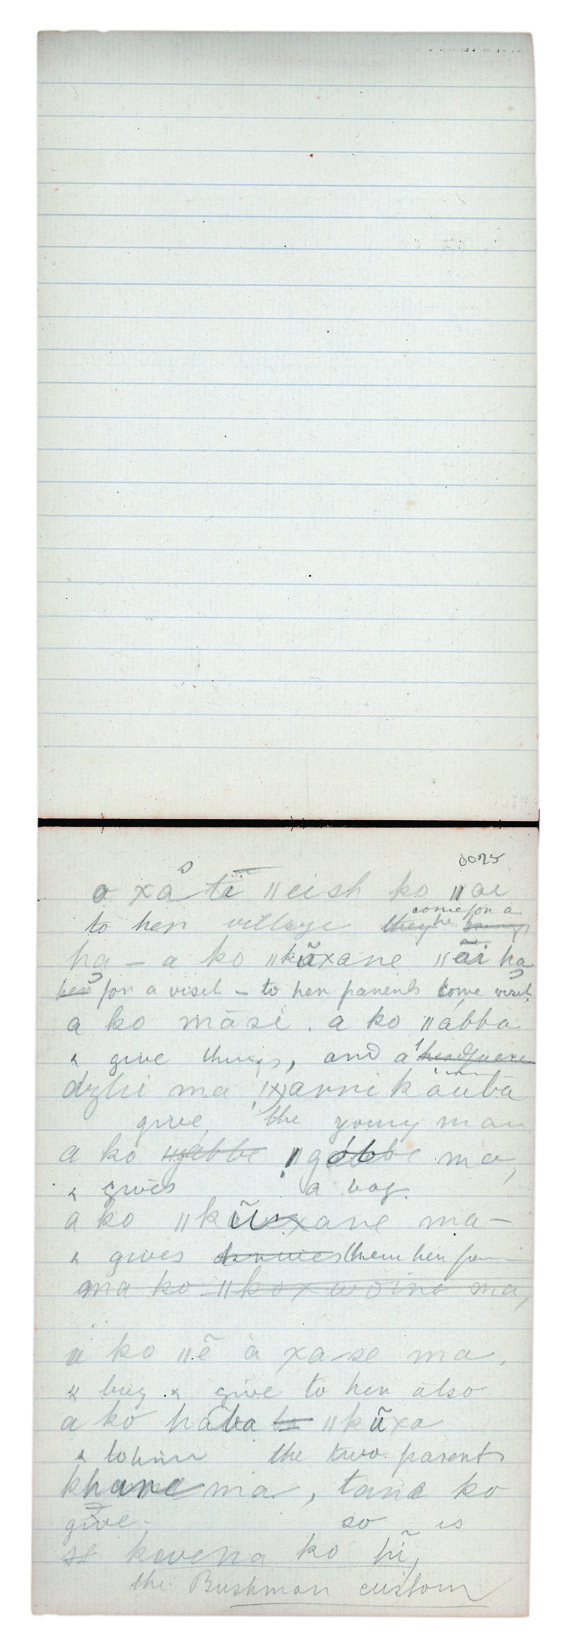 0025
o xa tĩ ǁeish ko ǁai
to her village they he come for a
ha – a ko ǁkũxane ǁãi ha
her for a visit – to her parents come visit
a ko māsi . a ko ǁábba
& give things, and a
dzhi ma ǃxarrikáuba
give, the young man
a ko ǁgabbe ǁgobbe ma,
& gives a bag
a ko ǁkũxane ma –
& gives them her
ma ko ǁkoxwoino ma,
a ko ǁẽ à xa-se ma,
& buy & give to her also
a ko haba ǁkũxa
& to him the two parents
khane ma, tana ko
give. so is
se kovena ko hĩ,
the Bushman custom